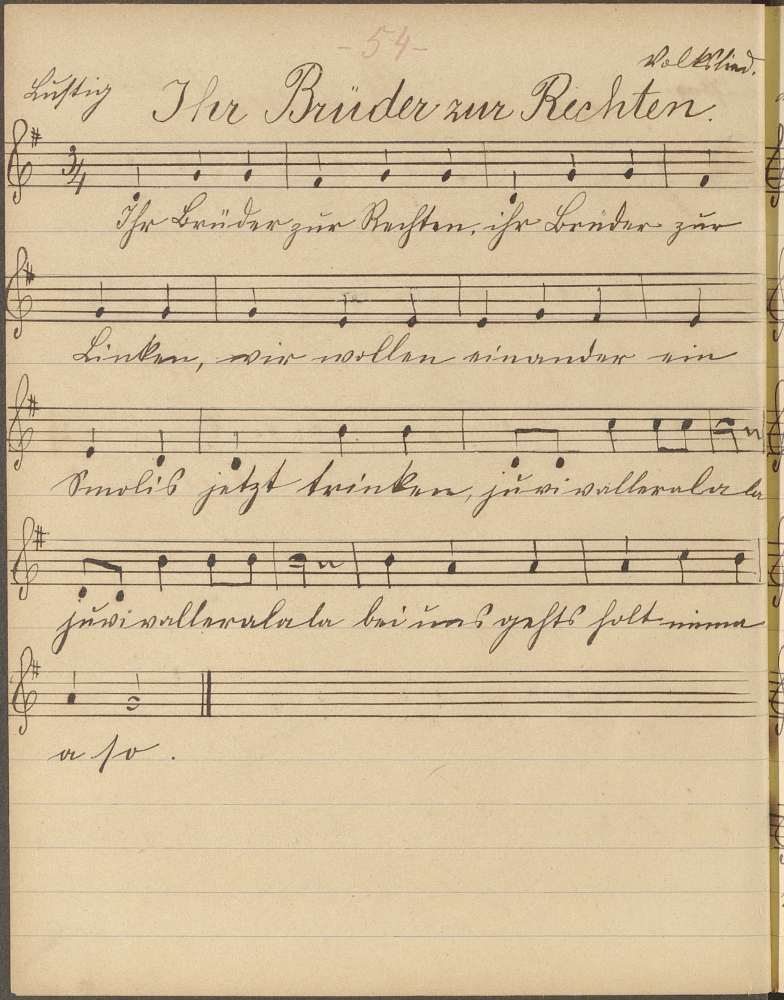 - 54 -
Volkslied.
Lustig
Ihr Brüder zur Rechten.
3/4
Ihr Brüder zur Rechten, ihr Brüder zur
Linken, wir wollen einander ein
Smolis jetzt trinken, juvivallerala la
juvivallerala la bei uns gehts holt imma
a so.